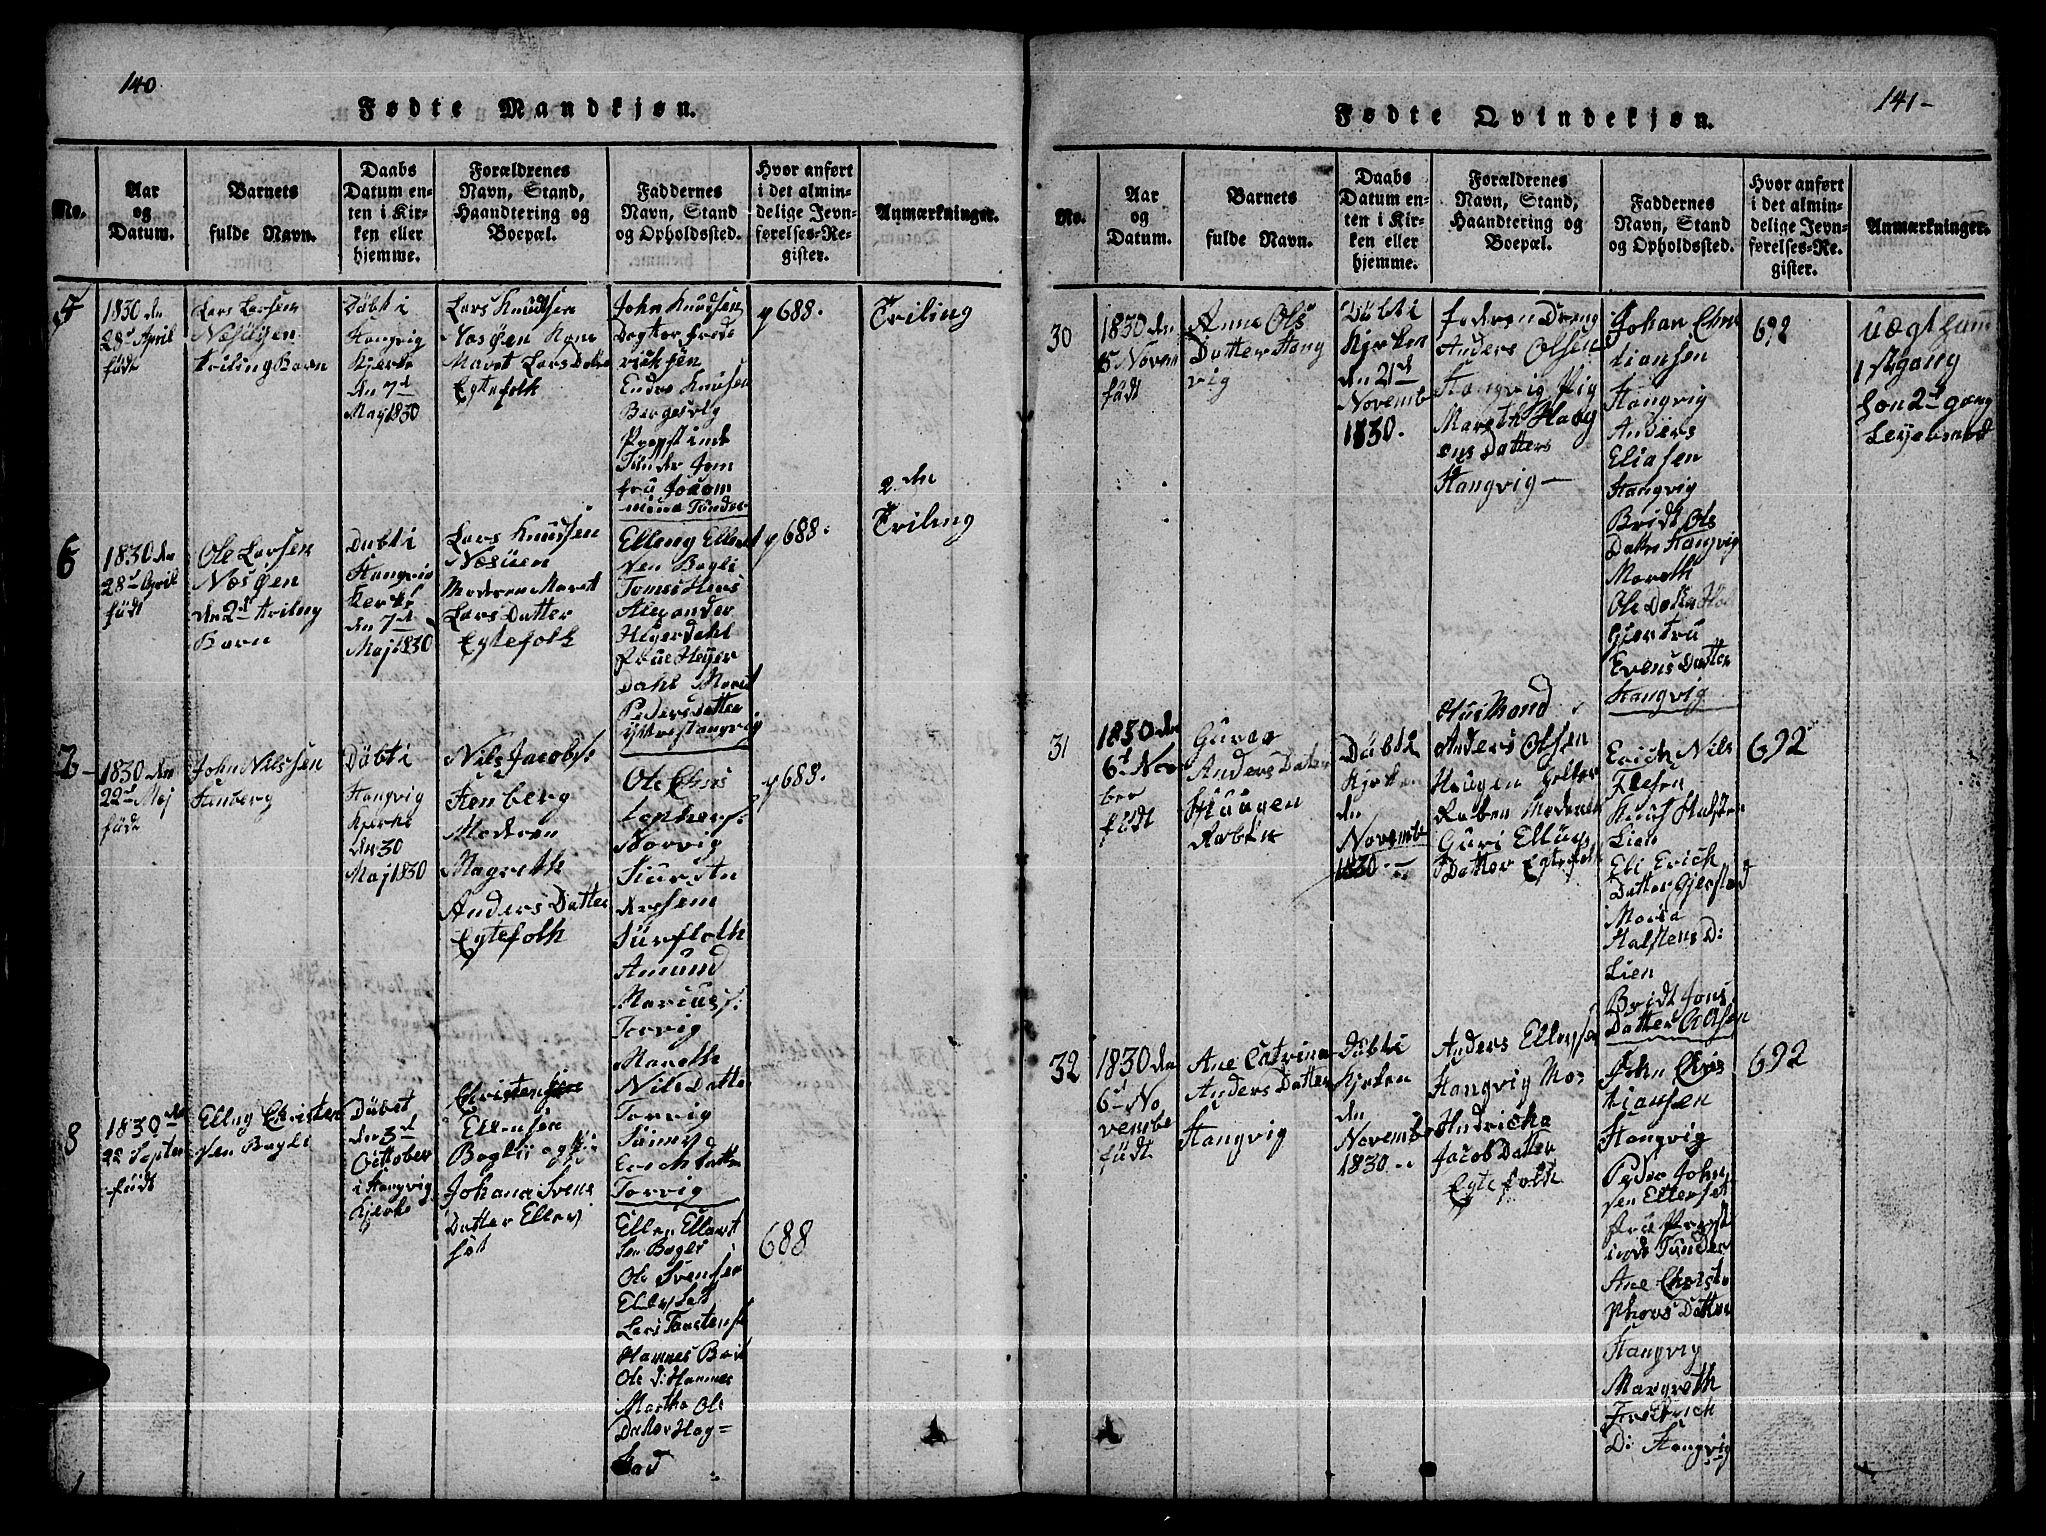 140
Fødte Mandkjøn.
No.
Aar
og
Datum.
Barnets
fulde Navn.
Daabs
Datum en-
ten i Kir-
ken eller
hjemme.
Forældrenes
Navn, Stand,
Haandtering og
Boepæl.
Faddernes
Navn, Stand
og Opholdssted.
Hvor anført
i det almin-
delige Jevn-
førelses-Re-
gister.
Anmærkninger.
5
1830 den
28d April
født
Lars Larsen
Næsøyen
triling Barn
Døbt i
Stangvig
Kjerke
den 7d
May 1830
Lars Knudsen
Næsøyen
Maret Lars Datter
Egtefolk
John Knudsen
Frede
ricksen
Endre Knusen
Bergesvig
Tønder Jom
fru
Tønder
688.
Triling
6
1830 den
28d April
født
Ole Larsen
Næsøyen
den 2d triling
Barn
Døbt i
Stangvig
Kerke
den 7d
Maj 1830
Lars Knudsen
Næsøen
Moderen Maret
Lars Datter
Egtefolk
Elleng Ellent
sen Bøgli
Alexander
Heyerdahl
Frue Heyer
Dahl Maret
Peders datter
Ystrestangvig
688.
2 den
Triling
7
1830 den
22d Maj
føde
John Nilssen
Stenberg
Døbt i
Stangvig
Kjerke
den 30
Maj 1830
Nils Jacobs:
Stenberg
Moderen
Magreth
Anders Datter
Egtefolk
Ole Chris
tophers:
Torvig
Amund
Marcuss:
Torvig
Mareth
Nils Datter
Torvig
Erich Datter
Torvig
688.
8
1830 den
22 Septem
født
Elleng Christen
sen Bøgli
Døbet
den 3d
October
i Stangvig
Kjerke
Christen
Ellensen
Bøgli og
Johana Svens
Datter Ellevs
sæt
Ellen Ellent
sen Bøgli
Ole Svensen
Ellevsæt
Lars Torstens:
Hamnes
Ole d: Hamnes
Martha Ole
Datter Hog=
stad
688
141-
Fødte Qvindekjøn.
No.
Aar
og
Datum.
Barnets
fulde Navn.
Daabs
Datum en-
ten i Kir-
ken eller
hjemme.
Forældrenes
Navn, Stand,
Haandtering og
Boepæl.
Faddernes
Navn, Stand
og Opholdssted.
Hvor anført
i det almin-
delige Jevn-
førelses-Re-
gister.
Anmærkninger.
30
1830 den
5 Novem
født
Anne Ols
Datter Stang
vig
Døbt i
Kjerken
den 21d
Novemb
1830.
Faderen Dreng
Anders Olsen
Stangvig Pig
Mareth Haag
ens Datters
Stangvig
Johan Chris
tiansen
Stangvig
Anders
Eliasen
Stangvig
Bridt Ols
Datter Stangvig
Mareth
Ole Datter
Gjertru
Evens Datter
Stangvig
692
uægt ham
1ste gang
hon 2d gang
Leyermaal
31
1830 den
6d Nov
ber
født
Guroe
Anders Datter
Haugen
Døbt i
Kjerken
den
Novemb
1830
Hus Mand
Anders Olsen
Haugen
Moderen
Guri Ellings
Datter Egtefolk
Erich Nils
Flesen
Knud Halsten
Lien
Eli Erich
Datter Gjerstad
Maria
Halstens D:
Lien
Bridt Jons
Datter
692
32
1830 den
6d No
vembe
født
Ane Catrina
Anders Datter
Stangvig
Døbt i
Kjerken
den
Novembe
1830
Anders Ellevsen
Stangvig Mo=
Hendricka
Jacob Datter
Egtefolk
John Chris
tiansen
Stangvig
Peder John
sen Ellevset
Fru Propst
inde Tønder
Ane Christo
phers Datter
Stangvig
Margreth
Fredrich
D: Stangvig
692